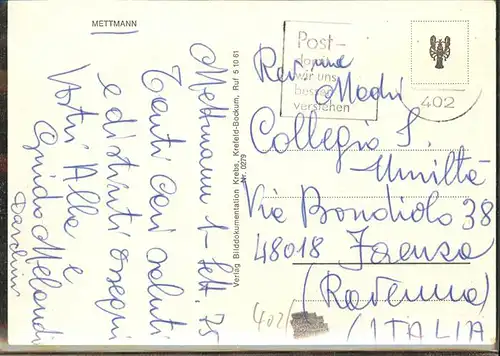 METTMANN
Mettmann 1-Sett. 75
Tanti Cari Saluti
e distinti ossequi
Vostri Alba e
Guido Melandri
Verlag Bilddokumentation Krebs, Krefeld-Bockum, Ruf 5 10 61
Nr. 0279
Post-
wir uns
verstehen
402
Rev. me Madri
Collegio S.
Umiltà
Via Bondiolo 38
48018 Faenza
(Ravenna)
(ITALIA)
402/